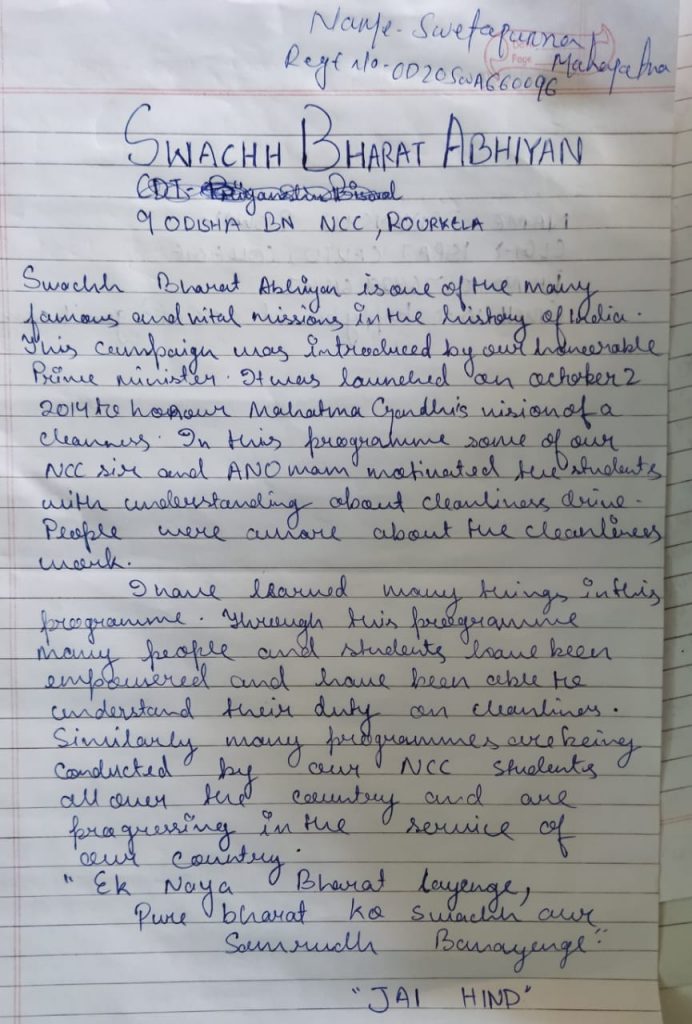 Name- Swetaparna
Mahapatra
Regt no- OD20SWA660096
Page
SWACHH BHARAT ABHIYAN
CDT-
9 ODISHA BN NCC, ROURKELA
Swachh Bharat Abhiyan is one of the many
famous and vital missions in the history of India.
This campaign was introduced by our honourable
Prime minister. It was launched on october 2
2014 to honour Mahatma Gandhi's vision of a
cleanness. In this programme some of our
NCC sir and ANO mam motivated the students
with understanding about cleanliness drive.
People were aware about the cleanliness
work.
I have learned many things in this
programme. Through this programme
many people and students have been
empowered and have been able to
understand their duty on cleanliness.
Similarly many programmes are being
conducted by our NCC students
all over the country and are
progressing in the service of
our country.
"Ek Naya Bharat layenge,
Pure bharat ko swachh aur
Samrudh Banayenge"
"JAI HIND"